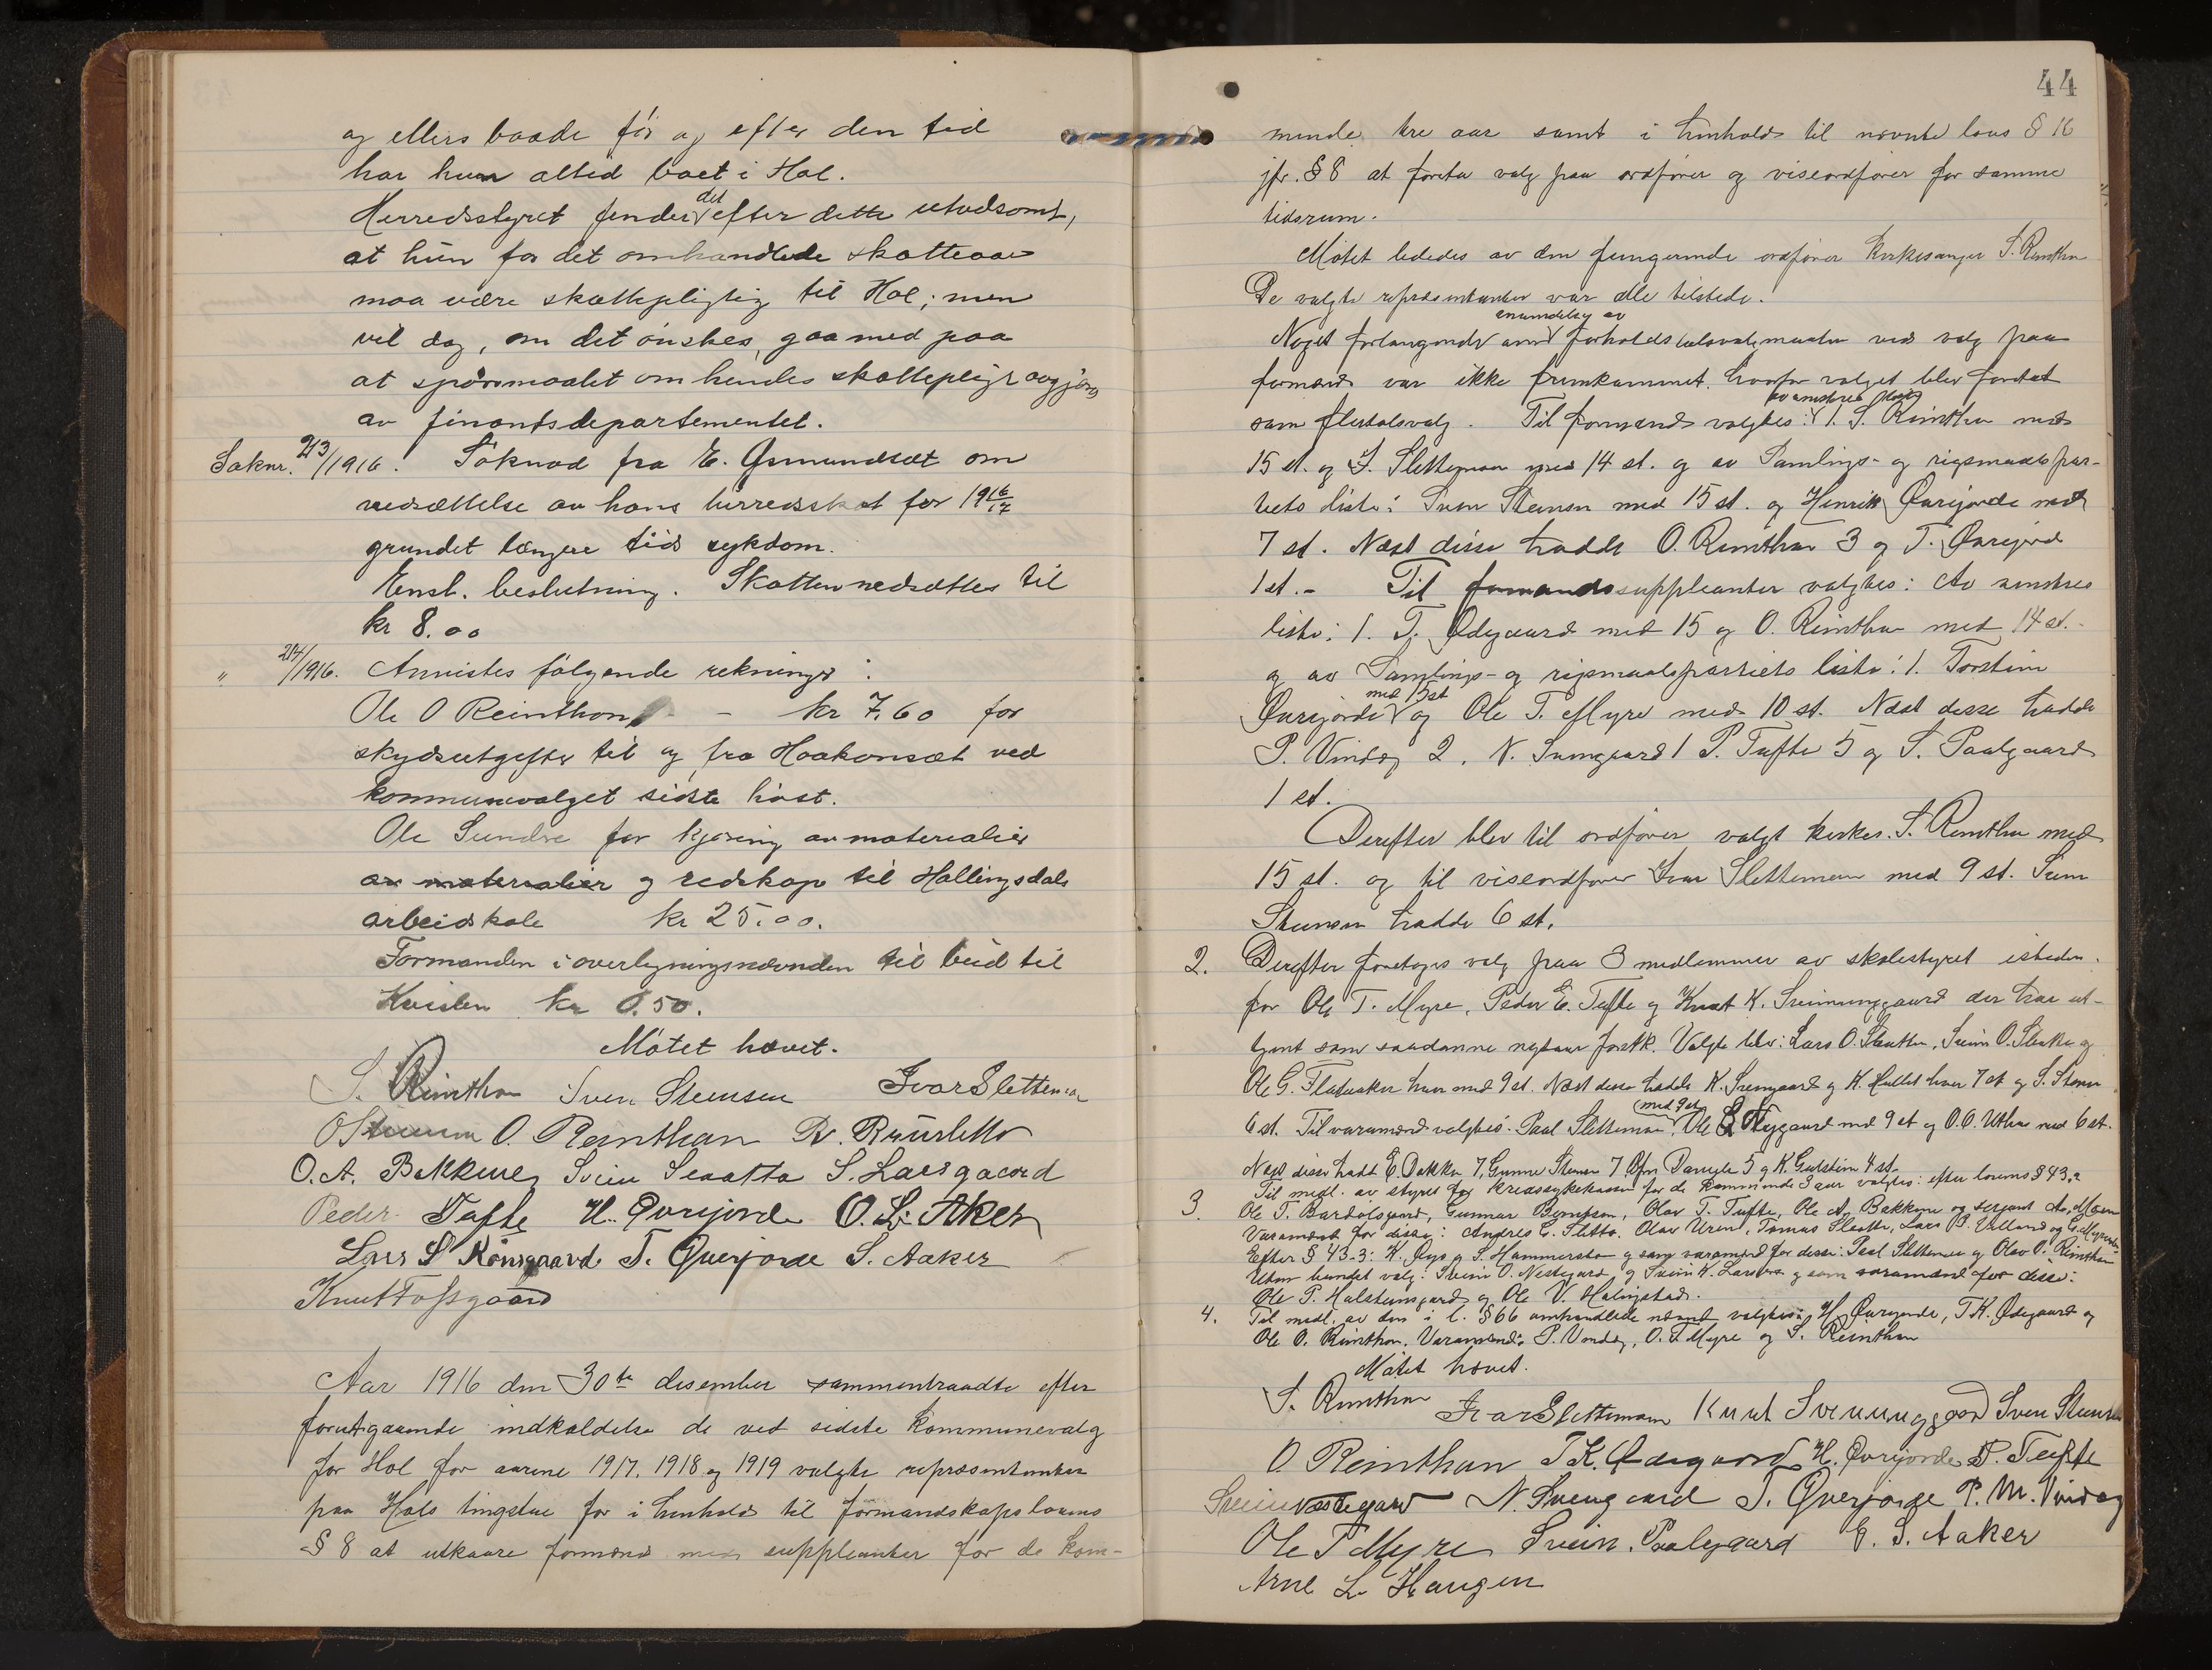 og ellers baade før og efter den tid
har hun altid boet i Hol.
Herredsstyret finder det efter dette utvdsomt,
at hun for det omhandlede skatteaar
maa være skattepligtig til Hol; men
vil dog, om det ønskes, gaa med paa
at spørsmaalet om hendes skattepligt avgjøres
av finantsdepartementet.
Saknr. 213/1916. Søknad fra E. Gsmundsæt om
nedsættelse av hans herredsskat for 1916/17
grundet længere tids sykdom.
Enst. beslutning. Skatten nedsættes til
kr 8.00
" 214/1916. Anvistes følgende rekninger:
Ole O Reinthon - kr 7.60 for
skydsutgifter til og fra Haakonsæt ved
kommunevalget sidste høst.
Ole Sundre for kjøring av materialier
av materialier og redskap til Hallingsdals
arbeidskole kr 25.00.
Formanden i overligningsnævnden til bud til
Kvislen kr 0.50.
Møtet hævet.
S. Reinthon Sven Steinsen Ivar Slettemoen
O. Reinthon
O. A. Bakkene Svein Slaatta S. Larsgaard
Peder Tufte H. Øvrejorde O. L. Aker
Lars S T. Øverjorde S. Aaker
Knut Fossgaard
Aar 1916 den 30te desember sammentraadte efter
forutgaaende indkaldelse de ved sidste kommunevalg
for Hol for aarene 1917, 1918 og 1919 valgte repræsentanter
paa Hols tingstue for i henhold til formandskapslovens
§ 8 at utkaare formænd med suppleanter for de kom-
44
mende tre aar samt i henhold til nævnte lovs § 16
jfr. § 8 at foreta valg paa ordfører og viseordfører for samme
tidsrum.
Møtet lededes av den fungerende ordfører kirkesanger S. Reinthon
De valgte repræsentanter var alle tilstede.
Noget forlangende om anvendelse av forholdstalsvalgmaaten ved valg paa
formænd var ikke fremkommet, hvorfor valget blev foretat
som flertalsvalg. Til formænd valgtes: av venstres liste 1. S. Reinthon med
15 st. og I. Slettemoen med 14 st. og av Samlings- og rigsmaalspar-
tiets liste: Sven Steinsen med 15 st. og Henrik Øvrejorde med
7 st. Næst disse hadde O. Reinthon 3 og T. Øvrejord
1 st. - Til formandssuppleanter valgtes: Av venstres
liste: 1. T. Ødegaard med 15 og O. Reinthon med 14 st. -
og av Samlings- og rigsmaalspartiets liste: 1. Torstein
Øvrejorde med 15 st og Ole T. Myre med 10 st. Næst disse hadde
P. Vindeg 2, N. Svengaard 1 P. Tufte 5 og S. Paalgaard
1 st.
Derefter blev til ordfører valgt kirkes. S. Reinthon med
15 st. og til viseordfører Ivar Slettemoen med 9 st. Sven
Steinsen hadde 6 st.
2. Derefter foretoges valg paa 3 medlemmer av skolestyret isteden-
for Ole T. Myre, Peder E. Tufte og Knut K. Sveinunggaard der har ut-
tjent som saadanne nytaar førstk. Valgte blev: Lars O. Slaatten, Svein O. Slaatta og
Ole G. Flatuaker hver med 9 st. Næst disse hadde K. Svengaard og K. Hallet hver 7 st og S. Stensen
6 st. Til varamænd valgtes: Paal Slettemoen med 9 st, Ole Nygaard med 9 st og O.O. Uthus med 6 st.
Næst disse hadde E. Bakka 7, Gunnar Stensen 7 5 og K. Gulstein 4 st.
3. Til medl. av styret for kredssykekassen for de kommende 3 aar valgtes: efter lovens § 43.2
Ole T. Bardolsgaard, Gunnar Bentson, Olav T. Tufte, Ole A. Bakkene og sersjant A. Moen
Varamænd for disse: Andres E. Sletto, Olav Uren, Tomas Slaatto, Lars B. Villand og
Efter § 43.3: K. Gys og S. Hammersbo og som varamænd for disse: Paal Slettemoen og Olav O. Reinthon
Uten bundet valg: Svein O. Nestegard og Svein K. Larsen og som varamænd for disse:
Ole P. Halsteinsgaard og Ole V. Holmgstad.
4. Til medl. av den i l. § 66 omhandlede nævnd valgtes: H. Øvrejorde, T.K. Ødegaard og
Ole O. Reinthon. Varamænd: P. Vindeg, O. T. Myre og S. Reinthon
Møtet hævet.
S. Reinthon Ivar Slettemoen Knut Sveinunggaard Sven Steinsen
O. Reinthon T K. Ødegaard H. Øvrejorde P. Tufte
Svein Nestegard N. Svengaard T. Øverjorde P. M. Vindeg
Ole T Myre Svein Paalsgaard E. S. Aaker
Arne L. Haugen